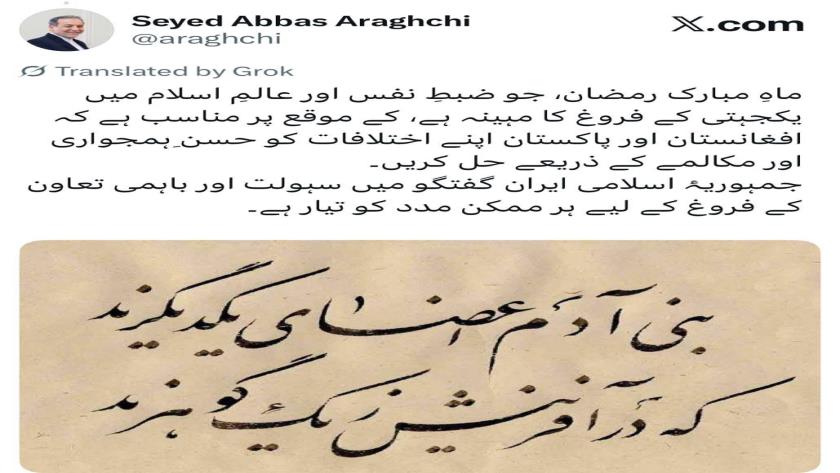 Seyed Abbas Araghchi
@araghchi
X.com
Translated by Grok
ماہِ مبارک رمضان، جو ضبطِ نفس اور عالمِ اسلام میں
یکجہتی کے فروغ کا مہینہ ہے، کے موقع پر مناسب ہے کہ
افغانستان اور پاکستان اپنے اختلافات کو حسنِ ہمجواری
اور مکالمے کے ذریعے حل کریں۔
جمہوریۂ اسلامی ایران گفتگو میں سہولت اور باہمی تعاون
کے فروغ کے لیے ہر ممکن مدد کو تیار ہے۔
بنی آدم اعضای یکدیگرند
که در آفرینش ز یک گوهرند